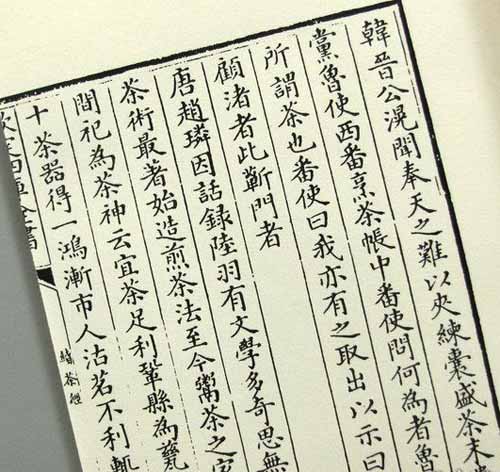 韓晉公滉聞奉天之難以夾練囊盛茶末
黨魯使西番烹茶帳中番使問何為者魯
所謂茶也番使曰我亦有之取出以示曰
顧渚者此蘄門者
唐趙璘因話録陸羽有文學多奇思無
茶術最著始造煎茶法至今鬻茶之家
閒祀為茶神云宜茶足利鞏縣為甆
十茶器得一鴻漸市人沽茗不利輒
四庫全書
續茶經